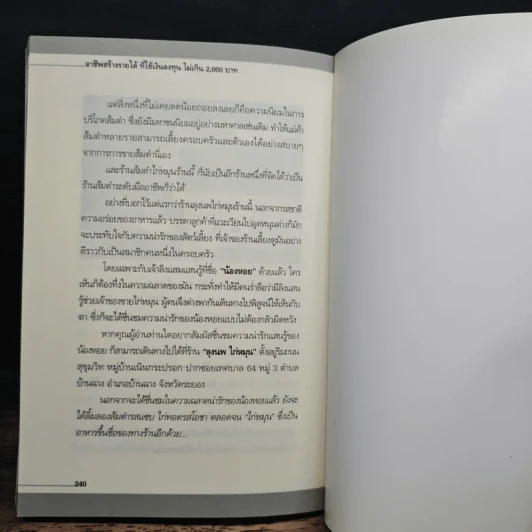 อาชีพสร้างรายได้ ที่ใช้เงินลงทุน ไม่เกิน 2,000 บาท
แต่สิ่งหนึ่งที่ไม่เคยลดน้อยถอยลงเลยก็คือความนิยมในการ
บริโภคส้มตำ ซึ่งยังมีมหาชนนิยมอยู่อย่างมหาศาลเช่นเดิม ทำให้แม่ค้า
ส้มตำหลายรายสามารถเลี้ยงครอบครัวและตัวเองได้อย่างสบายๆ
จากการการขายส้มตำนี่เอง
และร้านส้มตำไก่หมุนร้านนี้ ก็นับเป็นอีกร้านหนึ่งที่จัดได้ว่าเป็น
ร้านส้มตำระดับมืออาชีพก็ว่าได้
อย่างที่บอกไว้แต่แรกว่าร้านลุงนพไก่หมุนร้านนี้ นอกจากรสชาติ
ความอร่อยของอาหารแล้ว บรรดาลูกค้าที่แวะเวียนไปอุดหนุนต่างก็มัก
จะประทับใจกับความน่ารักของสัตว์เลี้ยง ที่เจ้าของร้านเลี้ยงดูมันอย่าง
ดีราวกับเป็นสมาชิกคนหนึ่งในครอบครัว
โดยเฉพาะกับเจ้าลิงแสมแสนรู้ที่ชื่อ "น้องหอย" ด้วยแล้ว ใคร
เห็นก็ต้องทึ่งในความฉลาดของมัน กระทั่งทำให้มีคนร่ำลือว่ามีลิงแสน
รู้ช่วยเจ้าของขายไก่หมุน ผู้คนจึงต่างพากันเดินทางไปพิสูจน์ให้เห็นกับ
ตา ซึ่งก็จะได้ชื่นชมความน่ารักของน้องหอยแบบไม่ต้องกลัวผิดหวัง
หากคุณผู้อ่านท่านใดอยากสัมผัสชื่นชมความน่ารักแสนรู้ของ
น้องหอย ก็สามารถเดินทางไปได้ที่ร้าน "ลุงนพ ไก่หมุน" ตั้งอยู่ริมถนน
สุขุมวิท หมู่บ้านเนินกระปรอก ปากซอยเทศบาล 64 หมู่ 3 ตำบล
บ้านฉาง อำเภอบ้านฉาง จังหวัดระยอง
นอกจากจะได้ชื่นชมในความฉลาดน่ารักของน้องหอยแล้ว ยังจะ
ได้ลิ้มลองส้มตำรสแซบ ไก่ทอดรสโอชา ตลอดจน "ไก่หมุน" ซึ่งเป็น
อาหารขึ้นชื่อของทางร้านอีกด้วย...
240